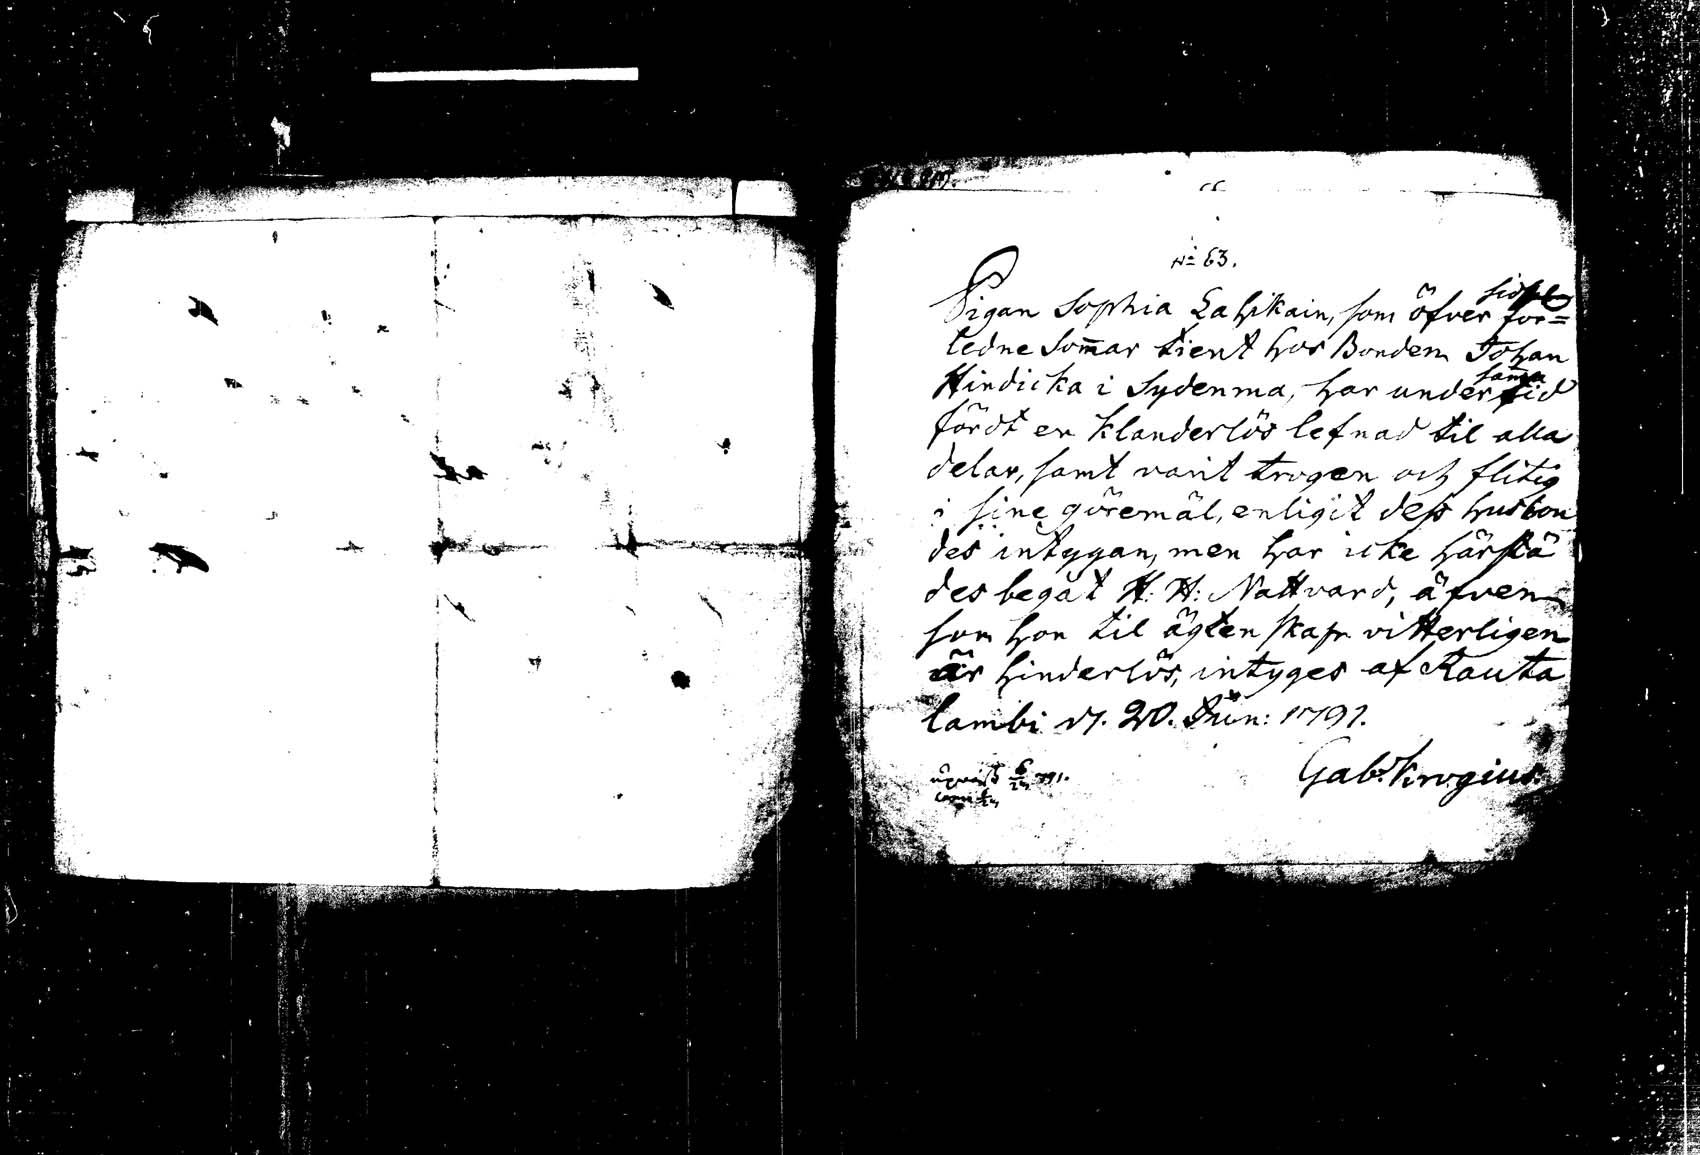 No 63.
sidst
Pigan Sophia Lahikain, som öfver för=
ledne Som̄ar tient hos Bonden Johan
Hindicka i Sydenma, har under sam̄a tid
fördt en klanderlös lefnad til alla
delar, samt varit trogen och flitig
i sine göremål, enligit dess husbon
des intygan, men har icke härstä
des begåt H. H: Nattvard, äfven
som hon til ägtenskap vitterligen
är hinderlös, intyges af Rauta
lambi d. 20. Jun: 1791.
Gabr. Krogius.